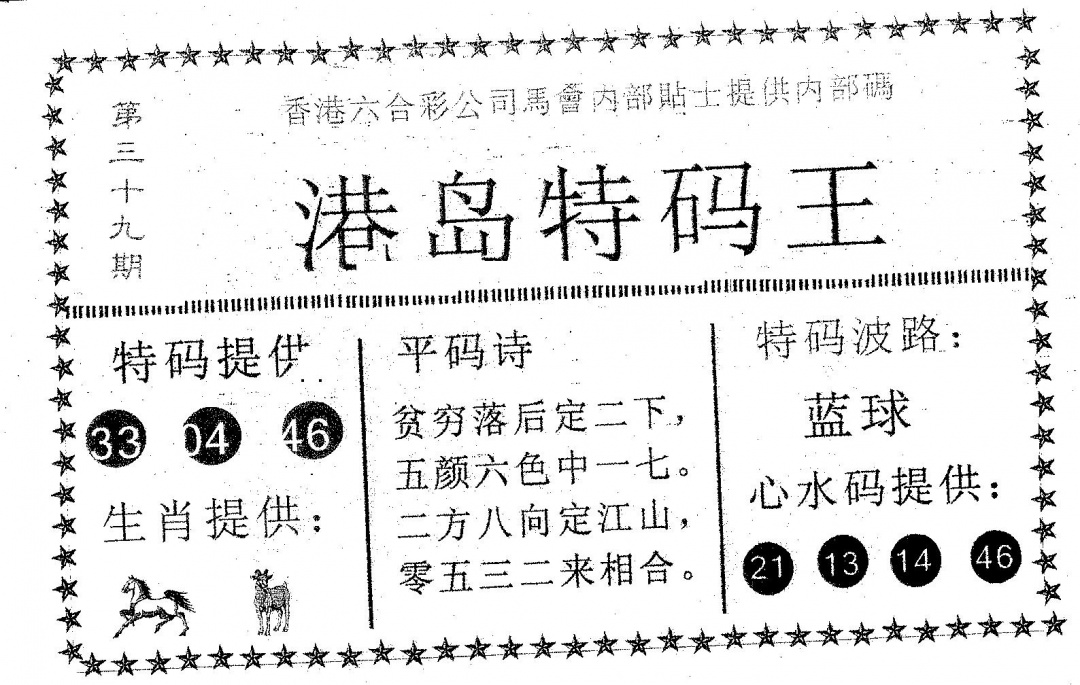 香港六合彩公司馬會内部貼士提供内部碼
第三十九期
港岛特码王
特码提供
33 04 46
生肖提供：
平码诗
贫穷落后定二下，
五颜六色中一七。
二方八向定江山，
零五三二来相合。
特码波路：
蓝球
心水码提供：
21 13 14 46